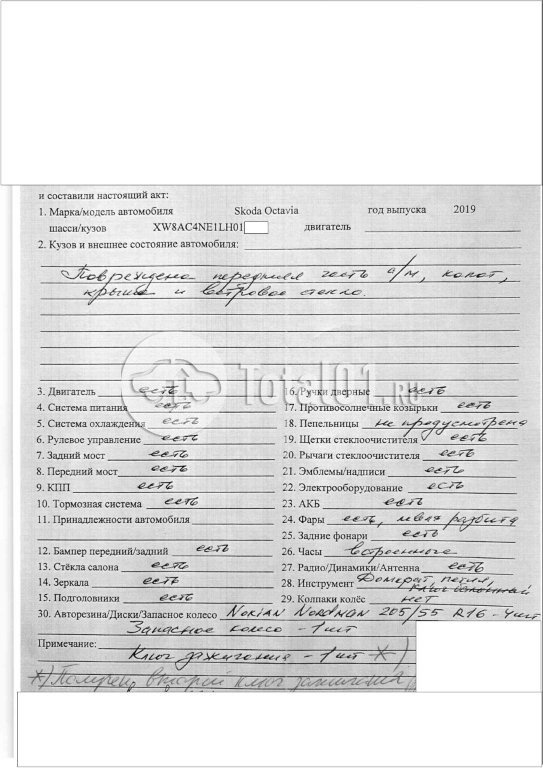 и составили настоящий акт:
1. Марка/модель автомобиля Skoda Octavia год выпуска 2019
шасси/кузов XW8AC4NE1LH01 двигатель
2. Кузов и внешнее состояние автомобиля:
Повреждена передняя часть а/м, капот,
крыша и ветровое стекло.
Total01.RU
3. Двигатель есть
4. Система питания есть
5. Система охлаждения есть
6. Рулевое управление есть
7. Задний мост есть
8. Передний мост есть
9. КПП есть
10. Тормозная система есть
11. Принадлежности автомобиля
12. Бампер передний/задний есть
13. Стёкла салона есть
14. Зеркала есть
15. Подголовники есть
16. Ручки дверные есть
17. Противосолнечные козырьки есть
18. Пепельницы не предусмотрена
19. Щетки стеклоочистителя есть
20. Рычаги стеклоочистителя есть
21. Эмблемы/надписи есть
22. Электрооборудование есть
23. АКБ есть
24. Фары есть, левая разбита
25. Задние фонари есть
26. Часы встроенные
27. Радио/Динамики/Антенна есть
28. Инструмент Домкрат, петля,
ключ балонный
29. Колпаки колёс нет
30. Авторезина/Диски/Запасное колесо NOKIAN NORDMAN 205/55 R16 - 4 шт
Запасное колесо - 1 шт
Примечание:
Ключ зажигания - 1 шт *)
*) второй ключ зажигания